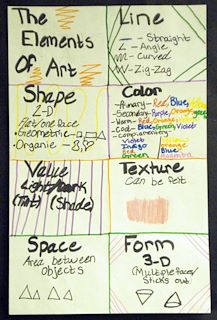 The
Elements
Of Art
Line
- Straight
- Angle
- Curved
- Zig-Zag
Shape
2-D
Flat/one Face
- Geometric -
- Organic -
Color
- Primary - Red, Blue,
- Secondary - Purple, Orange, green
- Warm - Red, Orange,
- Cool - Blue, Green, Violet
- Complementary -
Violet
Indigo orange
Red Blue
Green
Value
Light/Dark
(Tint) (Shade)
Texture
Can be felt
Space
Area between
Objects
Form
3-D
(Multiple faces/
Sticks out)